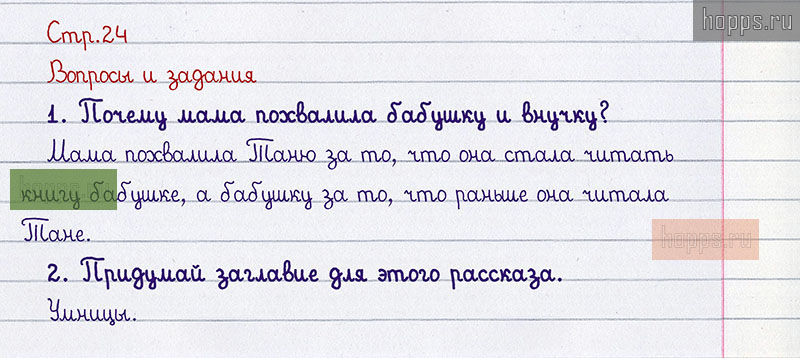 hopps.ru
Стр.24
Вопросы и задания
1. Почему мама похвалила бабушку и внучку?
Мама похвалила Таню за то, что она стала читать
книгу бабушке, а бабушку за то, что раньше она читала
Тане.
hopps.ru
2. Придумай заглавие для этого рассказа.
Умницы.